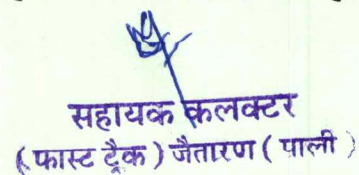 सहायक कलक्टर
(फास्ट ट्रैक) जैतारण (पाली)